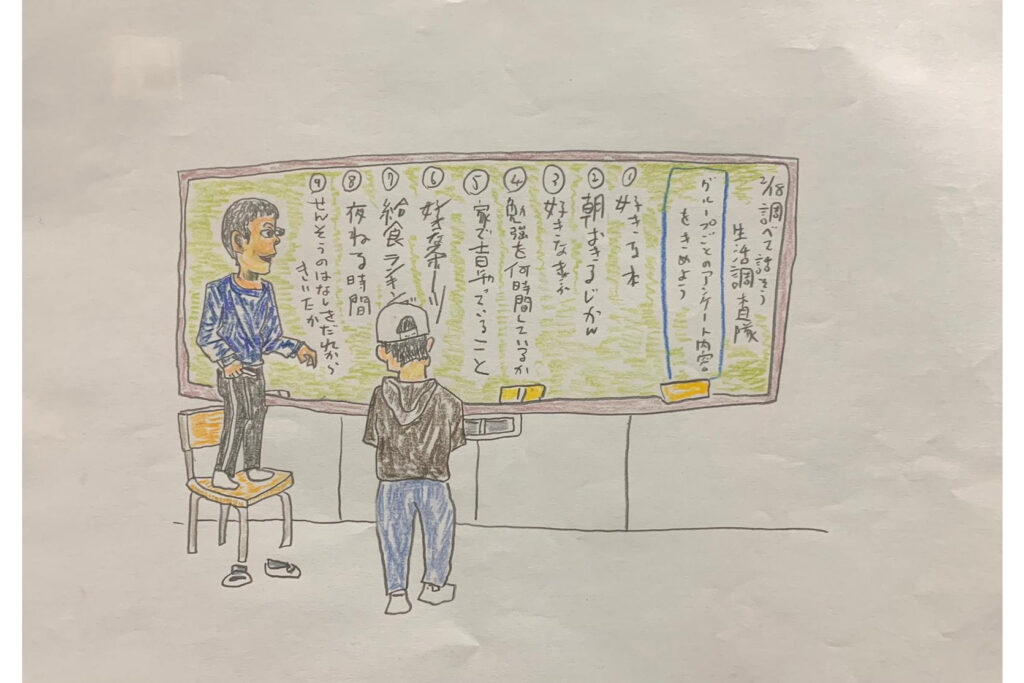 2/18 調べて話そう
生活調査隊
グループごとのアンケート内容
をきめよう
① 好きな本
② 朝おきるじかん
③ 好きな
④ 勉強を何時間しているか
⑤ 家で やっていること
⑥ 好きなスポーツ
⑦ 給食ランキング
⑧ 夜ねる時間
⑨ せんそうのはなしをだれから
きいたか